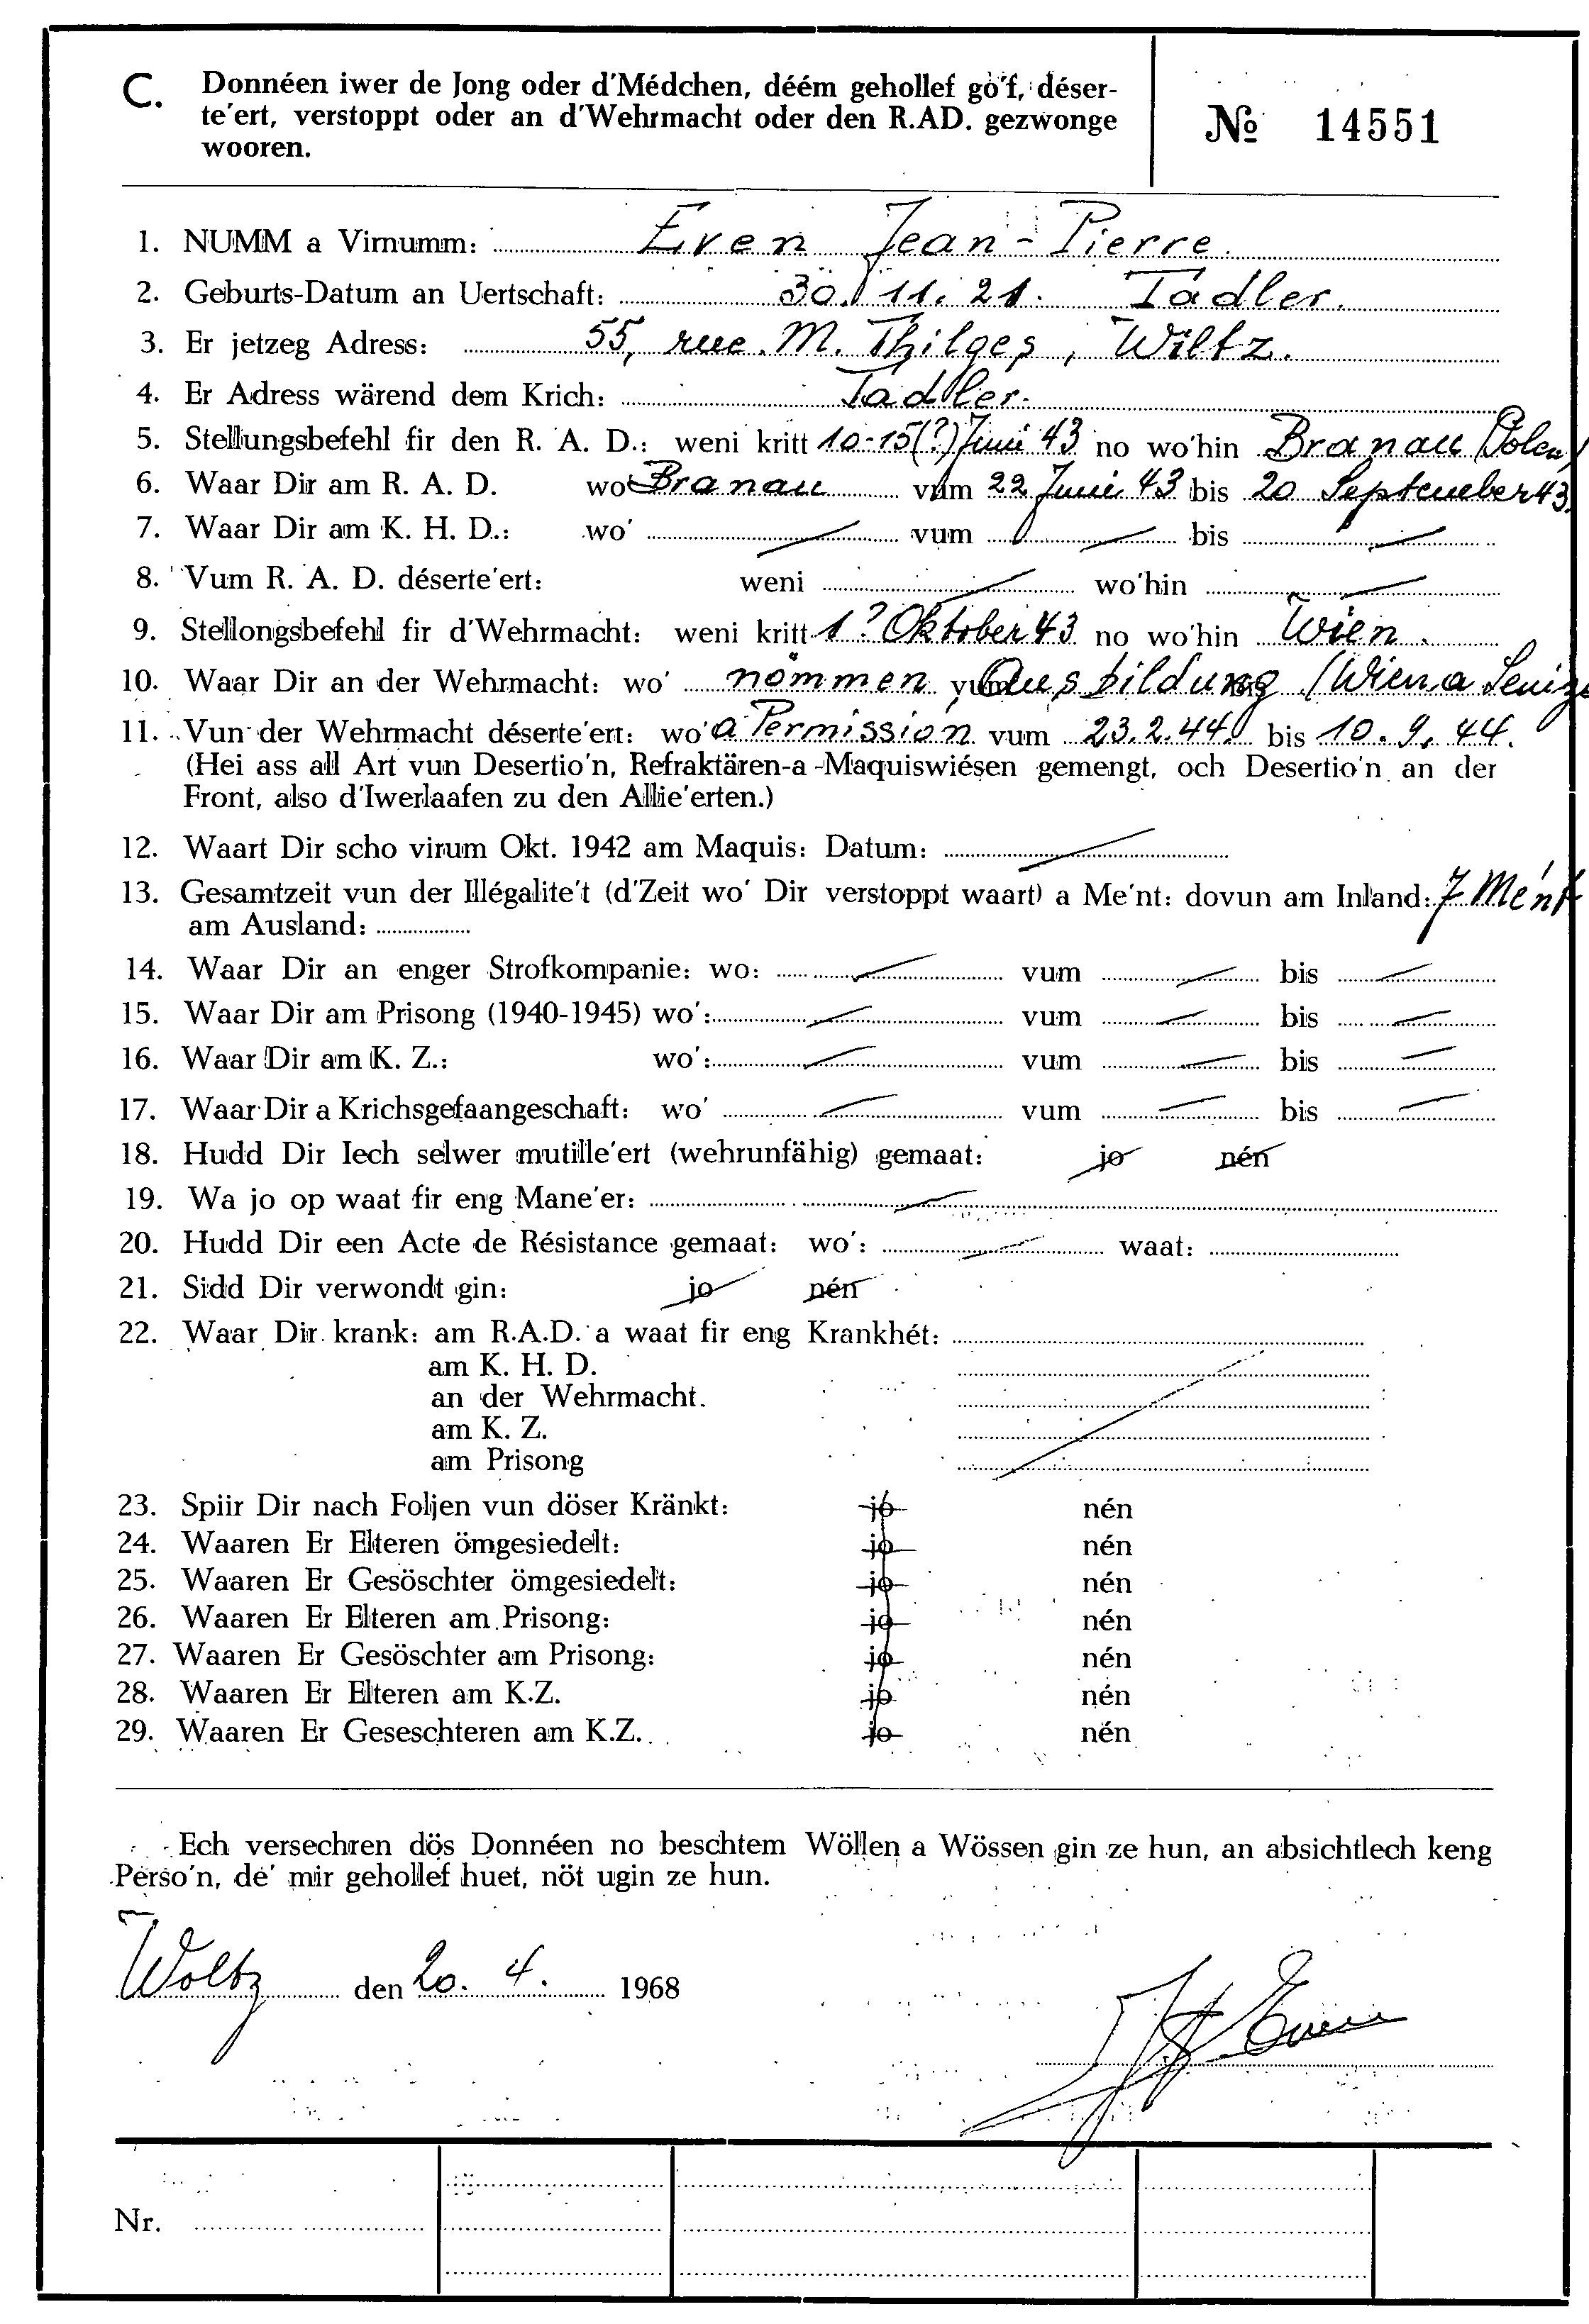 C. Donnéen iwer de Jong oder d'Médchen, déém gehollef go'f, déser-
te'ert, verstoppt oder an d'Wehrmacht oder den R.AD. gezwonge
wooren.
№ 14551
1. NUMM a Virnumm: Even Jean-Pierre.
2. Geburts-Datum an Uertschaft: 30. 11. 21. Tadler.
3. Er jetzeg Adress: 55, rue. M. Thilges, Wiltz.
4. Er Adress wärend dem Krich: Tadler.
5. Stellungsbefehl fir den R. A. D.: weni kritt 10-15(?) Juni 43 no wo'hin Branau (Polen)
6. Waar Dir am R. A. D. wo' Branau vum 22 Juni 43 bis 20 September 43.
7. Waar Dir am K. H. D.: wo' vum bis
8. Vum R. A. D. déserte'ert: weni wo'hin
9. Stellongsbefehl fir d'Wehrmacht: weni kritt 1? Oktober 43 no wo'hin Wien.
10. Waar Dir an der Wehrmacht: wo' nömmen vum Ausbildung bis (Wien a
11. Vun der Wehrmacht déserte'ert: wo' a Permission vum 23.2.44. bis 10.9.44.
(Hei ass all Art vun Desertio'n, Refraktären-a-Maquiswiésen gemengt, och Desertio'n an der
Front, also d'Iwerlaafen zu den Allie'erten.)
12. Waart Dir scho virum Okt. 1942 am Maquis: Datum:
13. Gesamtzeit vun der Illégalite't (d'Zeit wo' Dir verstoppt waart) a Me'nt: dovun am Inland: 7 Me'nt
am Ausland:
14. Waar Dir an enger Strofkompanie: wo: vum bis
15. Waar Dir am Prisong (1940-1945) wo': vum bis
16. Waar Dir am K. Z.: wo': vum bis
17. Waar Dir a Krichsgefaangeschaft: wo' vum bis
18. Hudd Dir Iech selwer mutille'ert (wehrunfähig) gemaat: jo nén
19. Wa jo op waat fir eng Mane'er:
20. Hudd Dir een Acte de Résistance gemaat: wo': waat:
21. Sidd Dir verwondt gin: jo nén
22. Waar Dir krank: am R.A.D. a waat fir eng Krankhét:
am K. H. D.
an der Wehrmacht.
am K. Z.
am Prisong
23. Spiir Dir nach Foljen vun döser Kränkt: jo nén
24. Waaren Er Elteren ömgesiedelt: jo nén
25. Waaren Er Gesöschter ömgesiedelt: jo nén
26. Waaren Er Elteren am Prisong: jo nén
27. Waaren Er Gesöschter am Prisong: jo nén
28. Waaren Er Elteren am K.Z. jo nén
29. Waaren Er Geseschteren am K.Z. jo nén
Ech versechren dös Donnéen no beschtem Wöllen a Wössen gin ze hun, an absichtlech keng
Perso'n, de' mir gehollef huet, nöt ugin ze hun.
Woltz den 20. 4. 1968
Even
Nr.